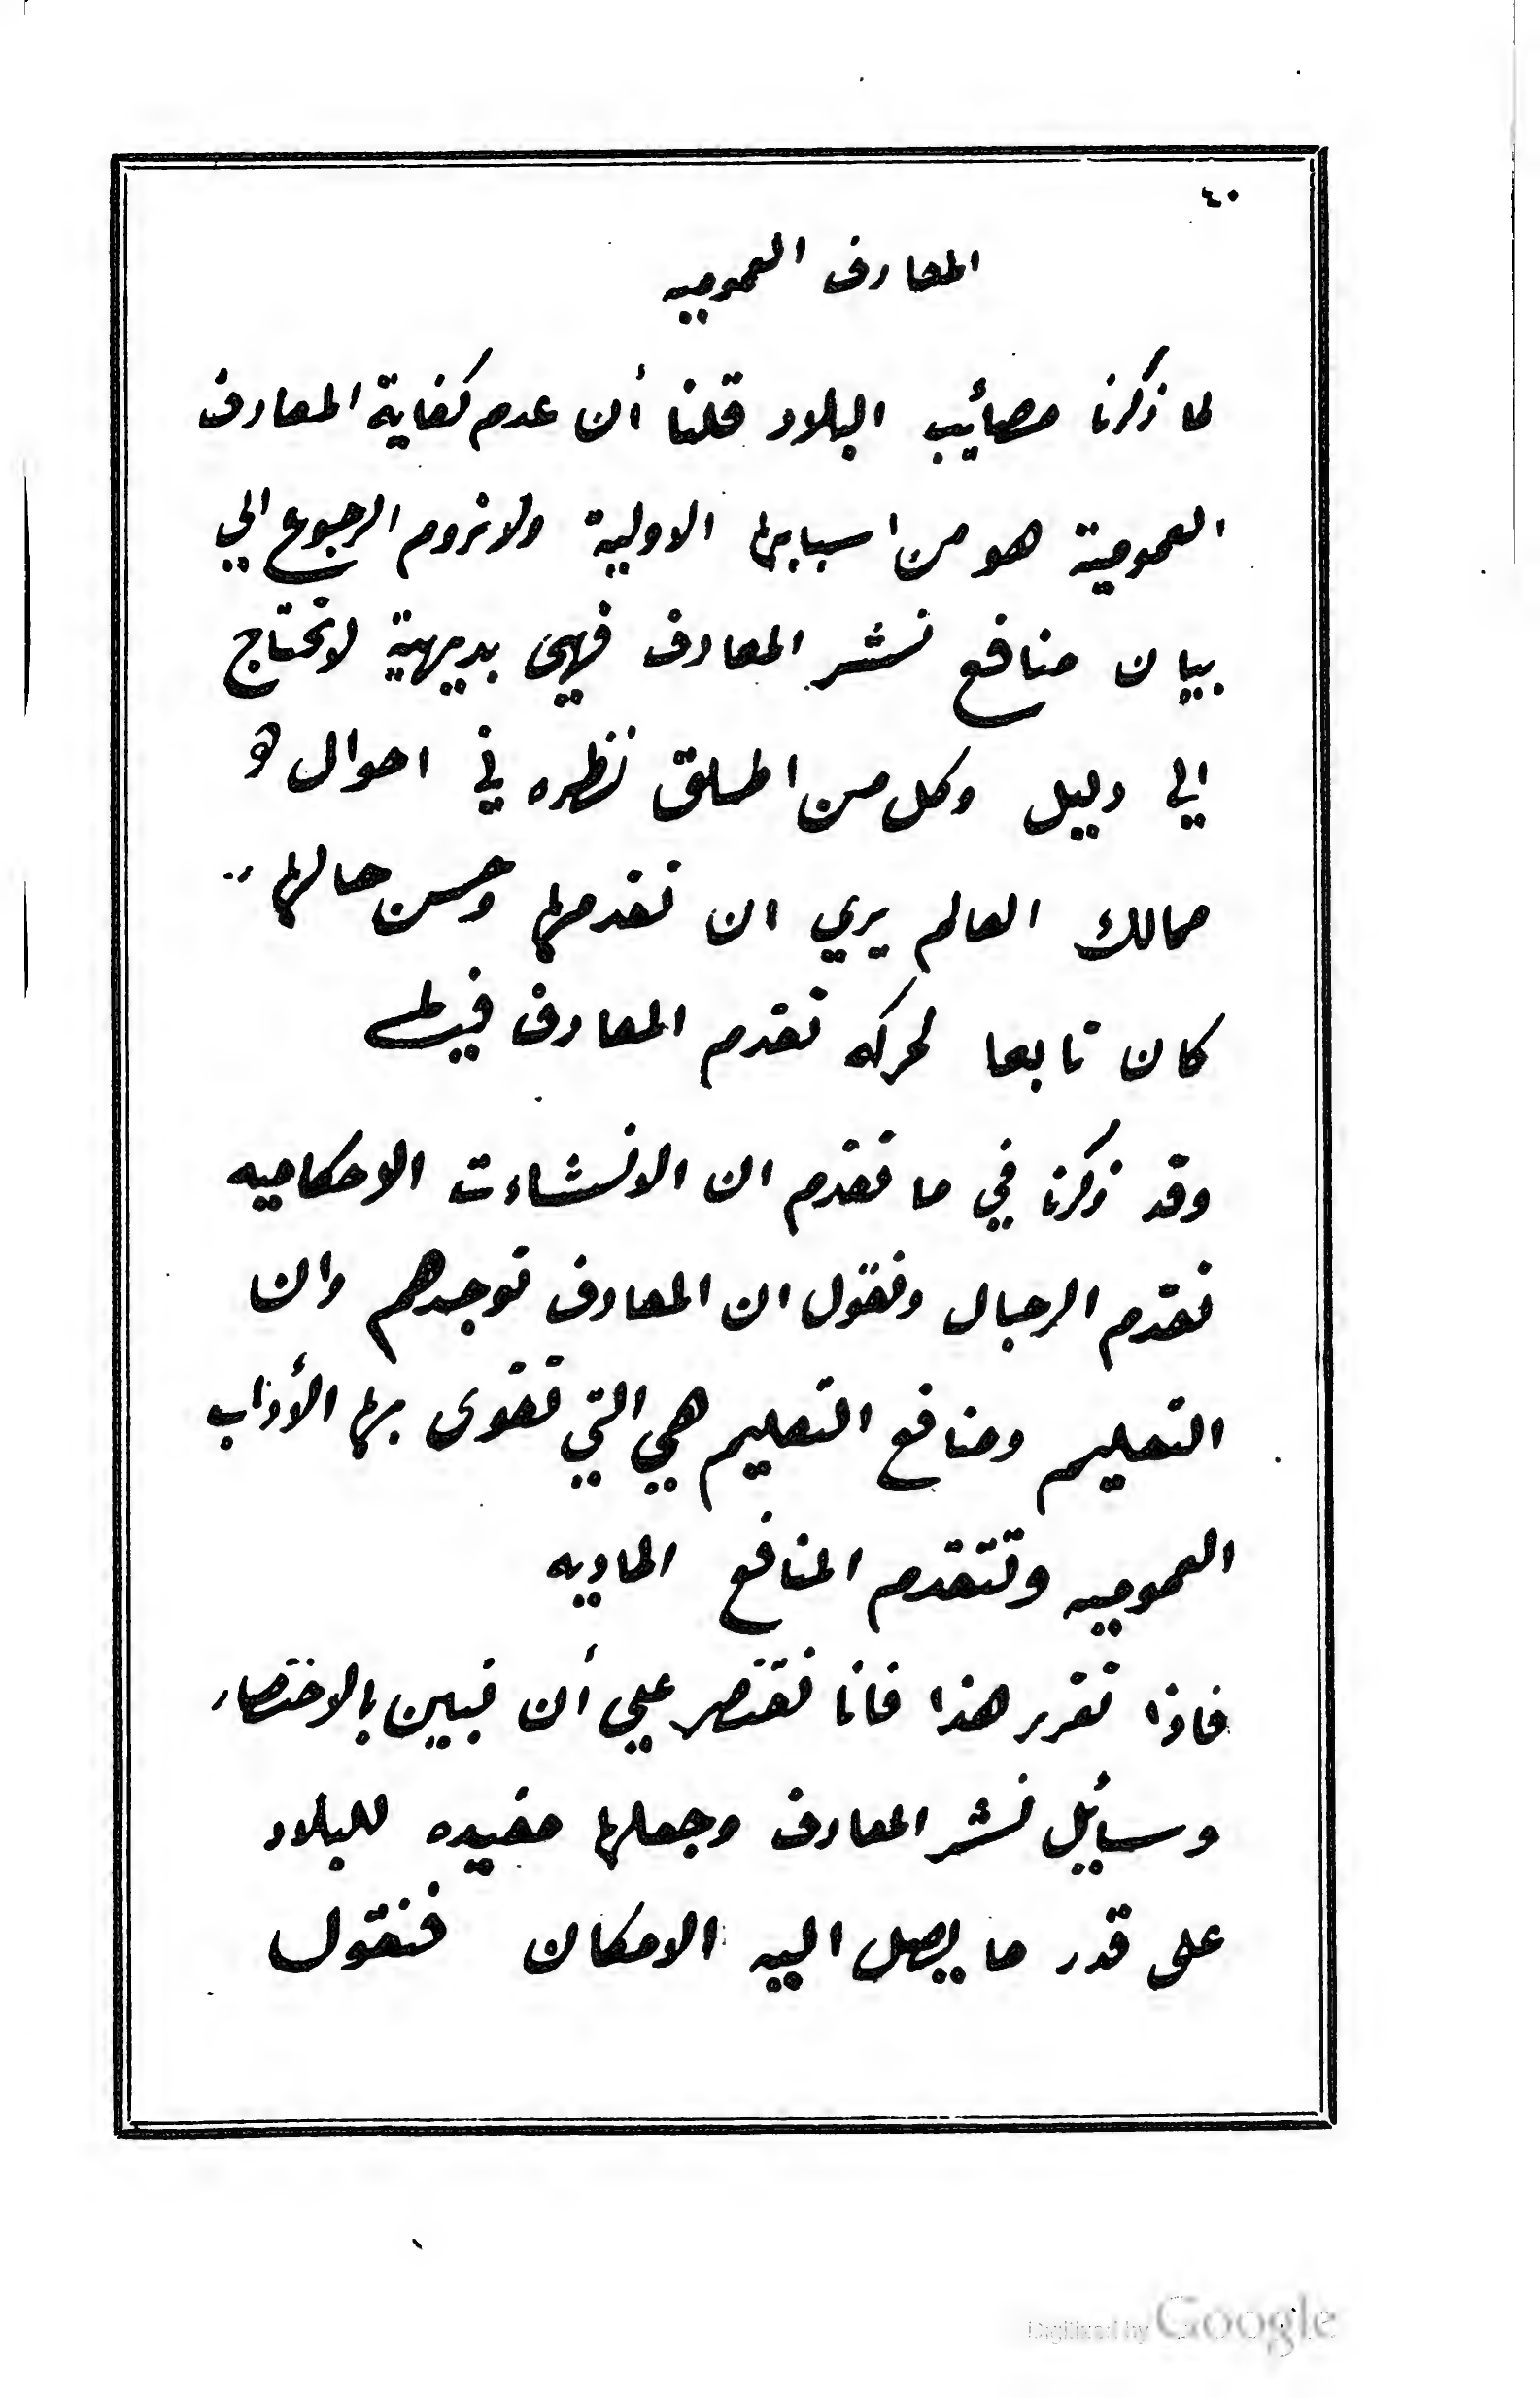 ٤٠
المعارف العموميه
لما ذكرنا مصائيب البلاد قلنا أن عدم كفاية المعارف
العمومية هو من اسبابها الاولية ولا نروم الرجوع الي
بيان منافع نشر المعارف فهي بديهية لا تحتاج
الي دليل وكل من اطلق نظره في احوال
ممالك العالم يري ان تقدمها وحسن حالها
كان تابعا لحركه تقدم المعارف فيها
وقد ذكرنا في ما تقدم ان الانشاءت الاحكاميه
تقدم الرجال ونقول ان المعارف توجدهم وان
التعليم ومنافع التعليم هي التي تقوى بها الأداب
العموميه وتتقدم المنافع الماديه
فاذا تقرر هذا فانا نقتصر علي أن نبين بالاختصار
وسأيل نشر المعارف وجعلها مفيده للبلاد
على قدر ما يصل اليه الامكان فنقول
Digitized by Google